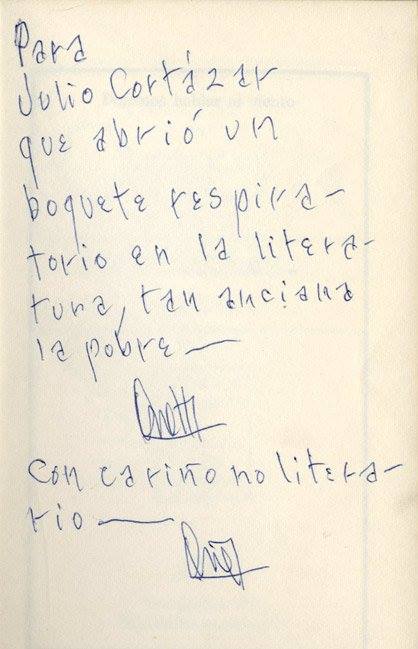 Para
Julio Cortázar
que abrió un
boquete respira-
torio en la litera-
tura, tan anciana
la pobre —
Onetti
Con cariño no litera-
rio —